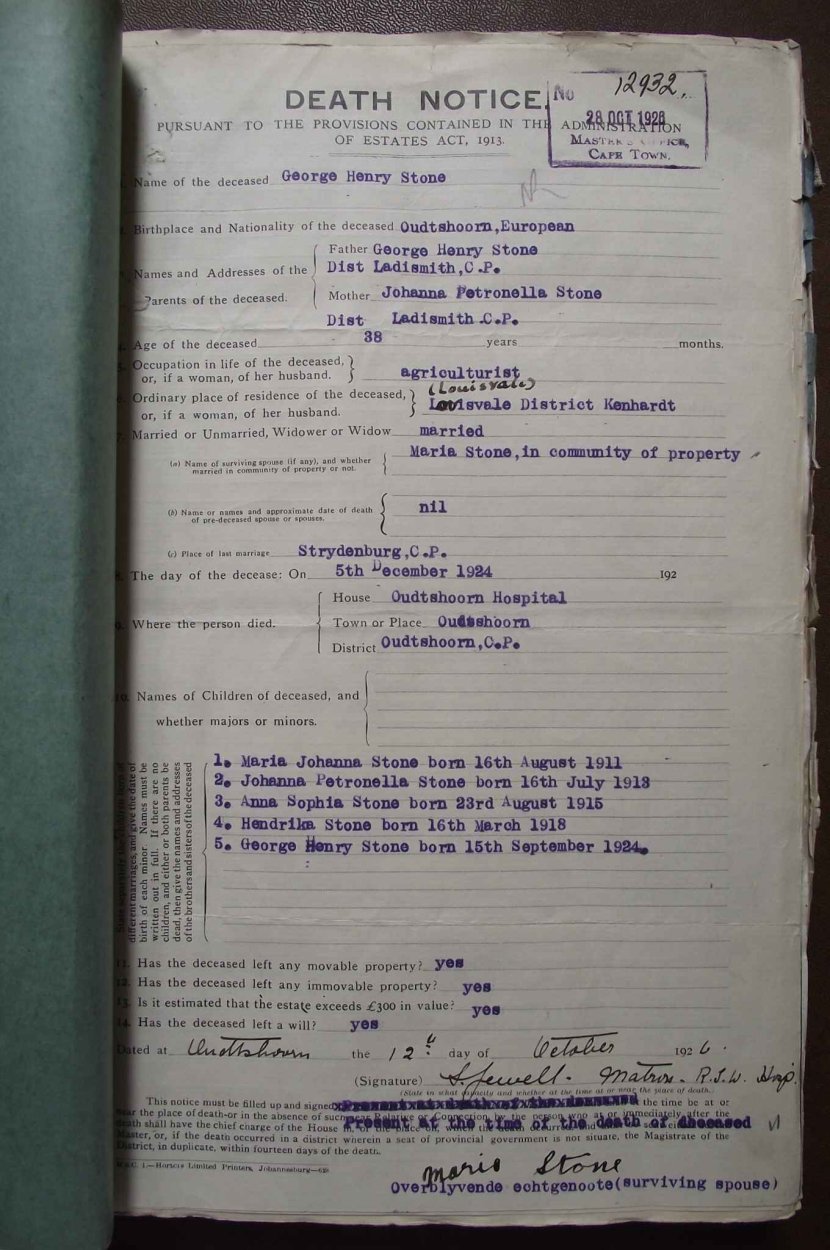 DEATH NOTICE.
No 12932.
28 OCT 1926
MASTER'S OFFICE,
CAPE TOWN.
PURSUANT TO THE PROVISIONS CONTAINED IN THE ADMINISTRATION
OF ESTATES ACT, 1913.
Name of the deceased George Henry Stone
Birthplace and Nationality of the deceased Oudtshoorn,European
Names and Addresses of the Parents of the deceased.
Father George Henry Stone
Dist Ladismith,C.P.
Mother Johanna Petronella Stone
Dist Ladismith C.P.
Age of the deceased 38 years months.
5. Occupation in life of the deceased,
or, if a woman, of her husband. agriculturist
(Louisvale)
6. Ordinary place of residence of the deceased,
or, if a woman, of her husband. Louisvale District Kenhardt
7. Married or Unmarried, Widower or Widow married
(a) Name of surviving spouse (if any), and whether
married in community of property or not. Maria Stone,in community of property
(b) Name or names and approximate date of death
of pre-deceased spouse or spouses. nil
(c) Place of last marriage Strydenburg,C.P.
8. The day of the decease: On 5th December 1924 192
9. Where the person died.
House Oudtshoorn Hospital
Town or Place Oudtshoorn
District Oudtshoorn,C.P.
10. Names of Children of deceased, and
whether majors or minors.
different marriages, and give the date of
birth of each minor. Names must be
written out in full. If there are no
children, and either or both parents be
dead, then give the names and addresses
of the brothers and sisters of the deceased
1. Maria Johanna Stone born 16th August 1911
2. Johanna Petronella Stone born 16th July 1913
3. Anna Sophia Stone born 23rd August 1915
4. Hendrika Stone born 16th March 1918
5. George Henry Stone born 15th September 1924.
11. Has the deceased left any movable property? yes
12. Has the deceased left any immovable property? yes
13. Is it estimated that the estate exceeds £300 in value? yes
14. Has the deceased left a will? yes
Dated at Oudtshoorn the 12th day of October 1926.
(Signature) S. Jewell. Matron. R.S.W. Hosp.
(State in what capacity and whether at the time at or near the place of death.)
This notice must be filled up and signed the time be at or
near the place of death—or in the absence of such near Relative or Connection by the person who at or immediately after the
death shall have the chief charge of the House in, or the place on, which the death occurred
Present at the time of the death of dheceased
Master, or, if the death occurred in a district wherein a seat of provincial government is not situate, the Magistrate of the
District, in duplicate, within fourteen days of the death.
1.—Hortors Limited Printers, Johannesburg
Maria Stone
Overblyvende echtgenoote(surviving spouse)